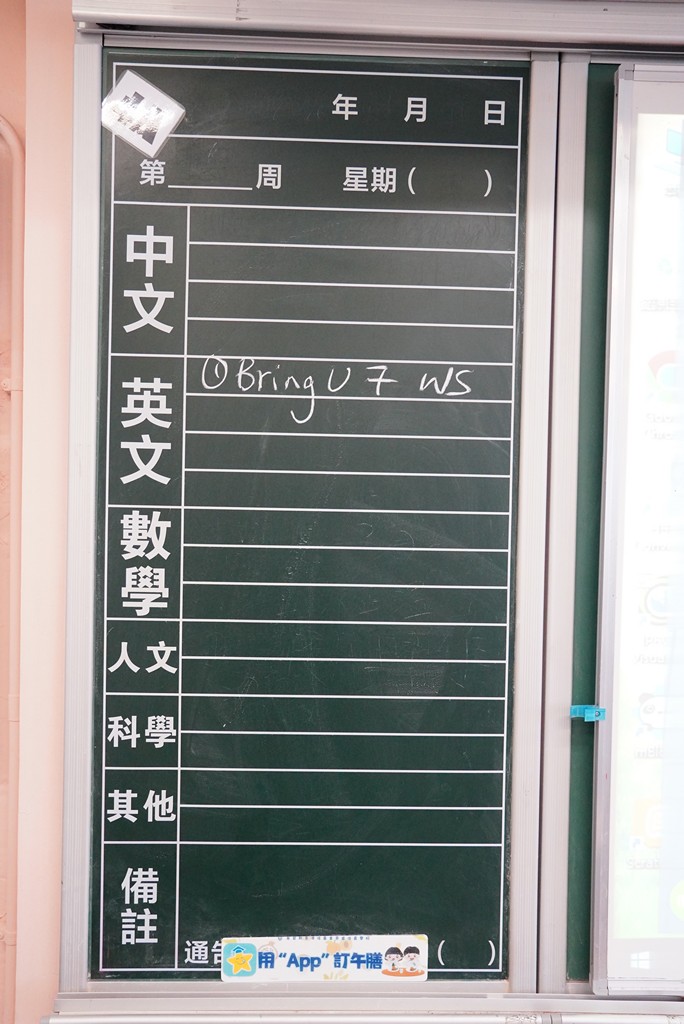 年 月 日
第______周 星期( )
中文
①Bring U 7 WS
英文
數學
人文
科學
其他
備註
通告
( )
用“App”訂午膳